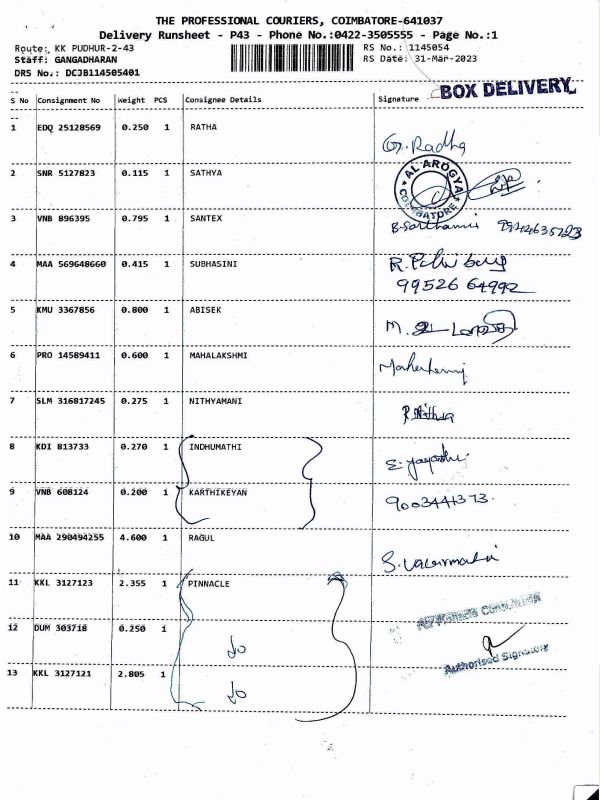 THE PROFESSIONAL COURIERS, COIMBATORE-641037
Delivery Runsheet - P43 - Phone No.:0422-3505555 - Page No.:1
Route: KK PUDHUR-2-43 RS No.: 1145054
Staff: GANGADHARAN RS Date: 31-Mar-2023
DRS No.: DCJB114505401
BOX DELIVERY
S No Consignment No Weight PCS Consignee Details Signature
1 EDQ 25128569 0.250 1 RATHA
G. Radha
2 SNR 5127823 0.115 1 SATHYA
AL AROGYA COIMBATORE
3 VNB 896395 0.795 1 SANTEX
4 MAA 569648660 0.415 1 SUBHASINI
R.
99526 64992
5 KMU 3367856 0.800 1 ABISEK
M.
6 PRO 14589411 0.600 1 MAHALAKSHMI
7 SLM 316817245 0.275 1 NITHYAMANI
8 KDI 813733 0.270 1 INDHUMATHI
9 VNB 608124 0.200 1 KARTHIKEYAN
9003441373
10 MAA 290494255 4.600 1 RAGUL
11 KKL 3127123 2.355 1 PINNACLE
12 DUM 303718 0.250 1
Authorised Signatory
13 KKL 3127121 2.805 1